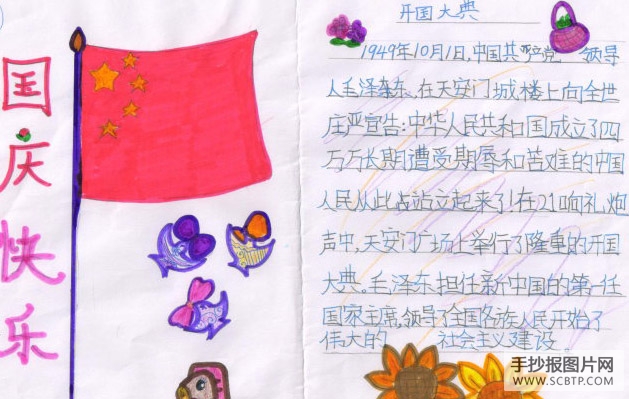 国庆快乐
开国大典
1949年10月1日,中国共产党 领导
人毛泽东、在天安门城楼上向全世
庄严宣告:中华人民共和国成立了四
万万长期遭受期辱和苦难的中国
人民从此占站立起来了!在21响礼炮
声中,天安门广场上举行了隆重的开国
大典.毛泽东担任新中国的第一任
国家主席,领导了全国各族人民开始了
伟大的 社会主义建设.
手抄报图片网
WWW.SCBTP.COM